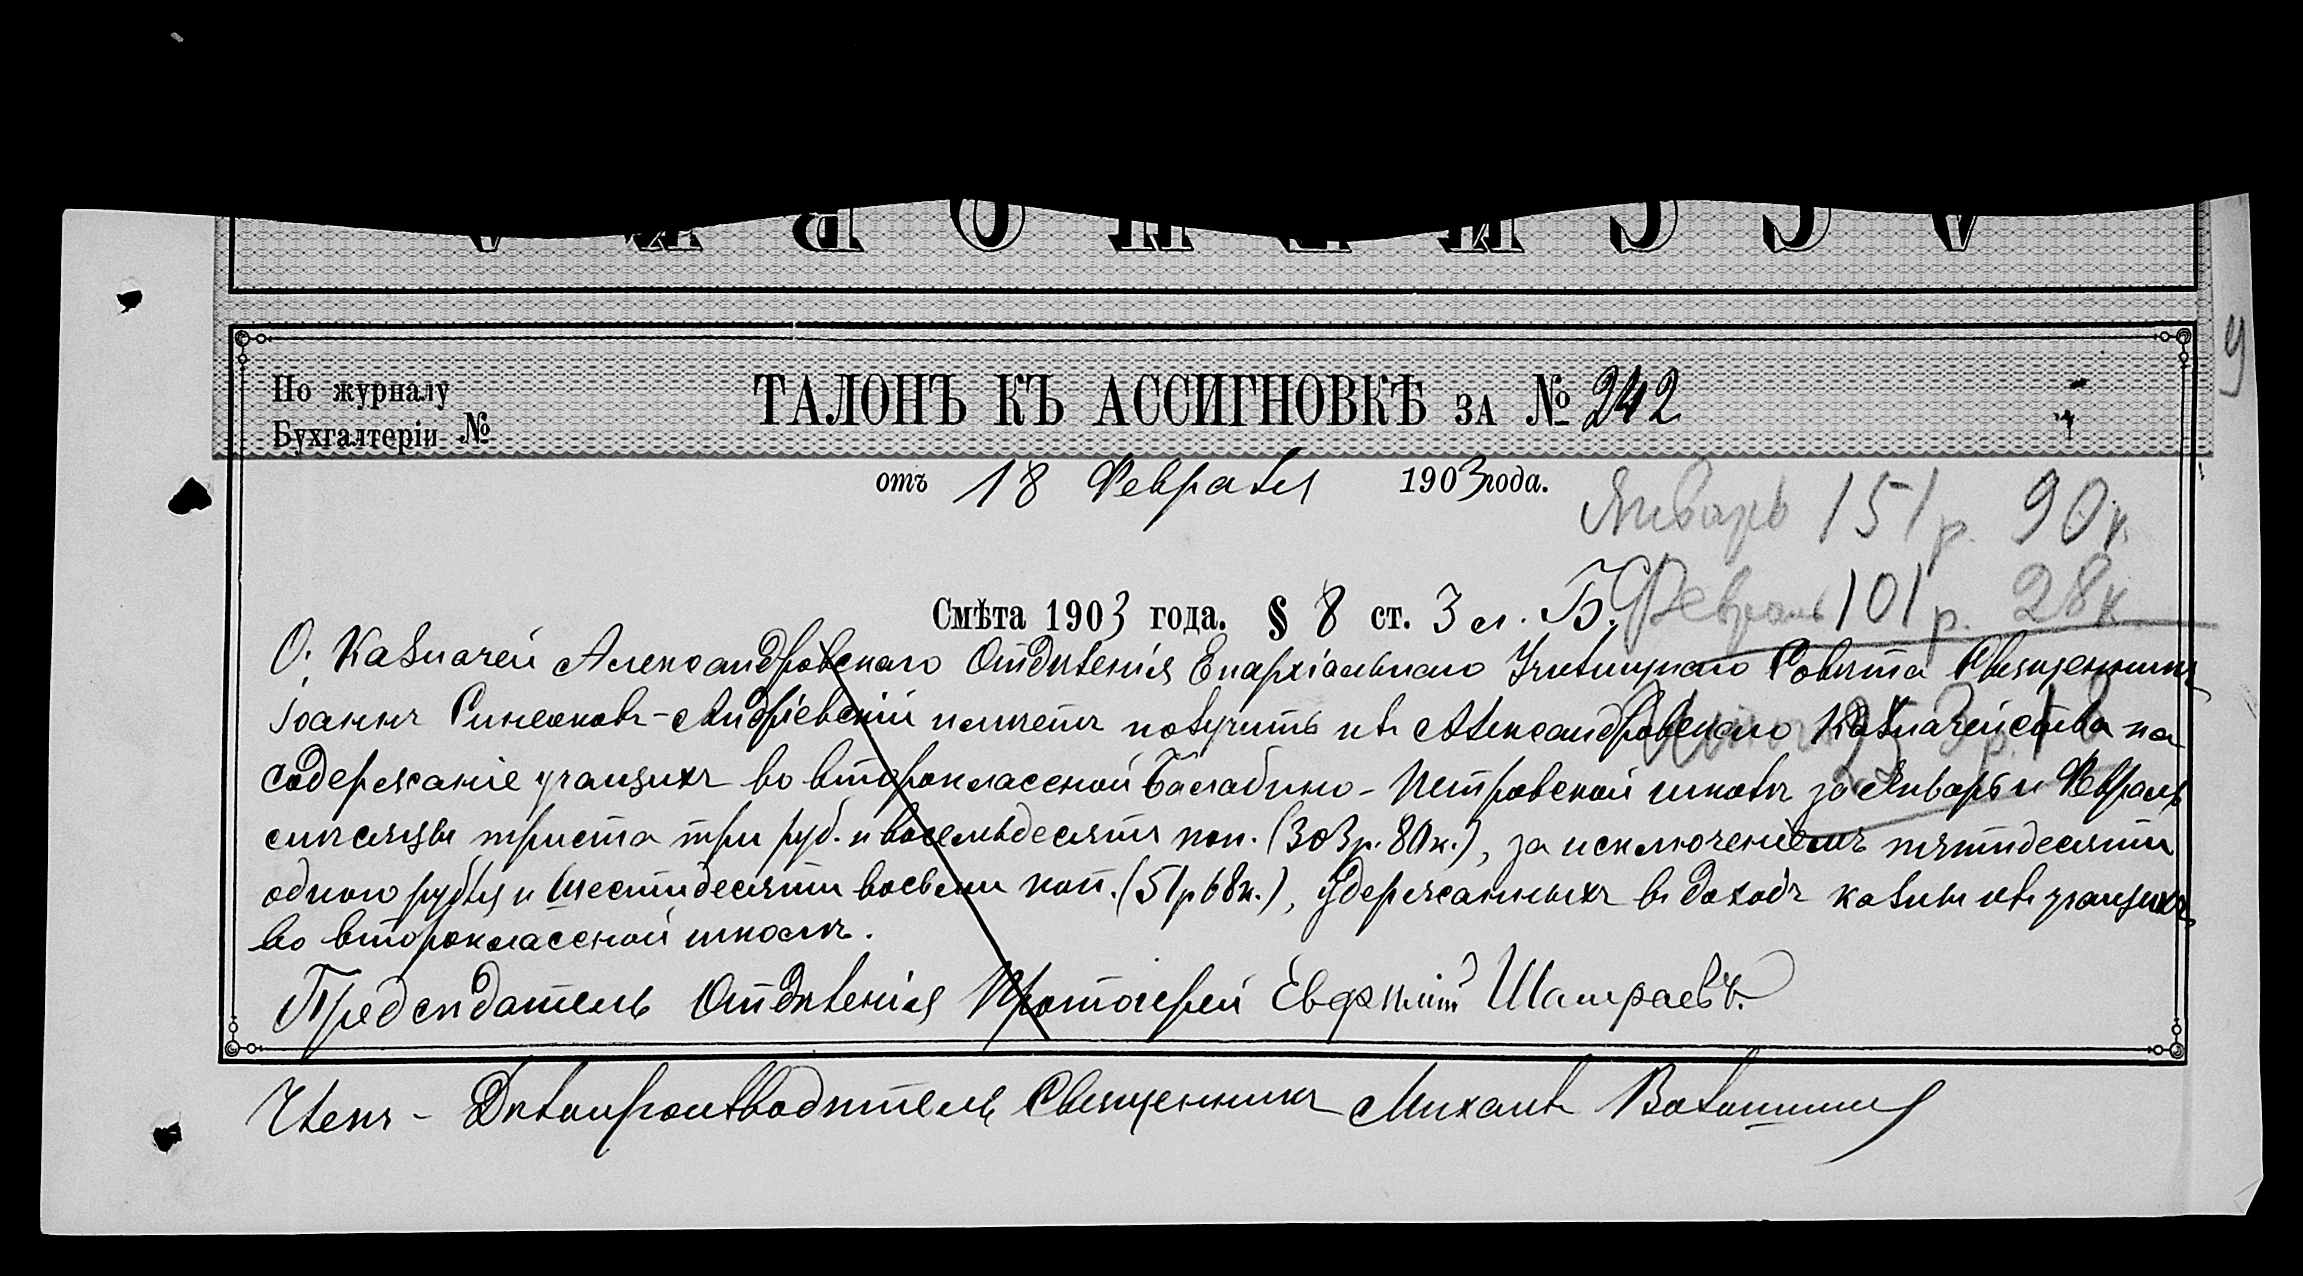 АССИГНОВКА
По журналу
Бухгалтеріи №
ТАЛОНЪ КЪ АССИГНОВКѢ за № 242
отъ 18 Февраля 1903 года.
Январь 151 р. 90 к.
Февраль 101 р. 28 к.
Смѣта 1903 года. § 8 ст. 3 л. Б.
О. Казначей Александровскаго Отдѣленія Епархіальнаго Училищнаго Совѣта Священникъ
Іоаннъ Андріевскій имѣетъ получить изъ Александровскаго Казначейства на
содержаніе учащихъ во второклассной Балабино-Петровской школѣ за Январь и Февраль
мѣсяцы триста три руб. и восемьдесятъ коп. (303 р. 80 к.), за исключеніемъ пятидесяти
одного рубля и шестидесяти восьми коп. (51 р 68 к.), удержанныхъ въ доходъ казны изъ учащихъ
во второклассной школѣ.
Предсѣдатель Отдѣленія Протоіерей Евфимій
Членъ - Дѣлопроизводитель Священникъ Михаилъ